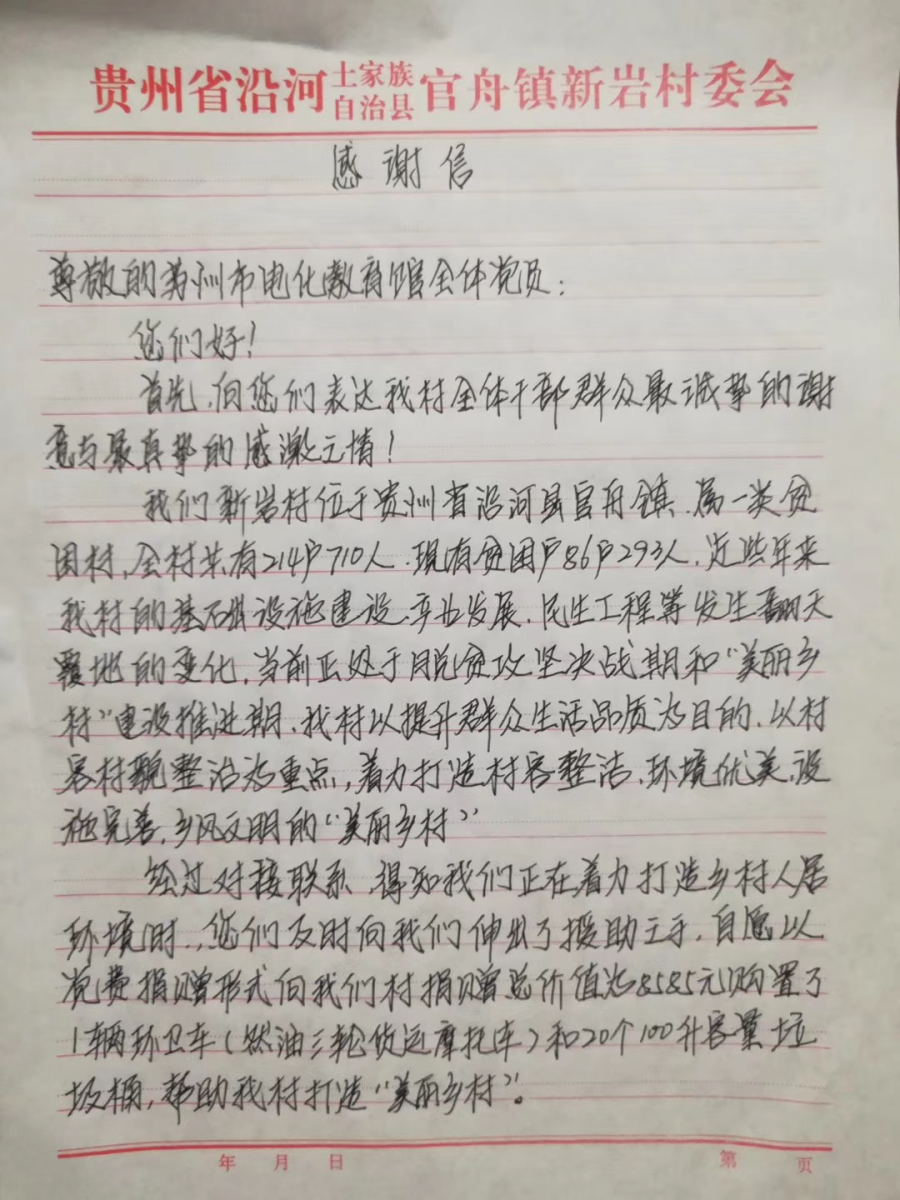 贵州省沿河土家族自治县官舟镇新岩村委会
感谢信
尊敬的苏州市电化教育馆全体党员：
您们好！
首先，向您们表达我村全体干部群众最诚挚的谢
意与最真挚的感激之情！
我们新岩村位于贵州省沿河县官舟镇，属一类贫
困村，全村共有214户710人，现有贫困户86户293人，近些年来
我村的基础设施建设、产业发展、民生工程等发生翻天
覆地的变化，当前正处于脱贫攻坚决战期和“美丽乡
村”建设推进期，我村以提升群众生活品质为目的，以村
容村貌整治为重点，着力打造村容整洁、环境优美、设
施完善，乡风文明的“美丽乡村”
经过对接联系，得知我们正在着力打造乡村人居
环境时，您们及时向我们伸出了援助之手，自愿以
党费捐赠形式向我们村捐赠总价值为8585元购置了
1辆环卫车（燃油三轮货运摩托车）和20个100升容量垃
圾桶，帮助我村打造“美丽乡村”。
年 月 日 第 页